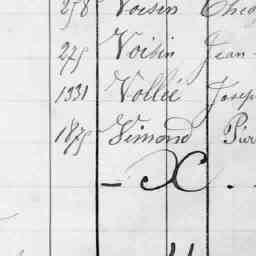 258 Voisin
225 Voisin Jean
1331 Vollée Josep
1875 Vimond Pier
- X .